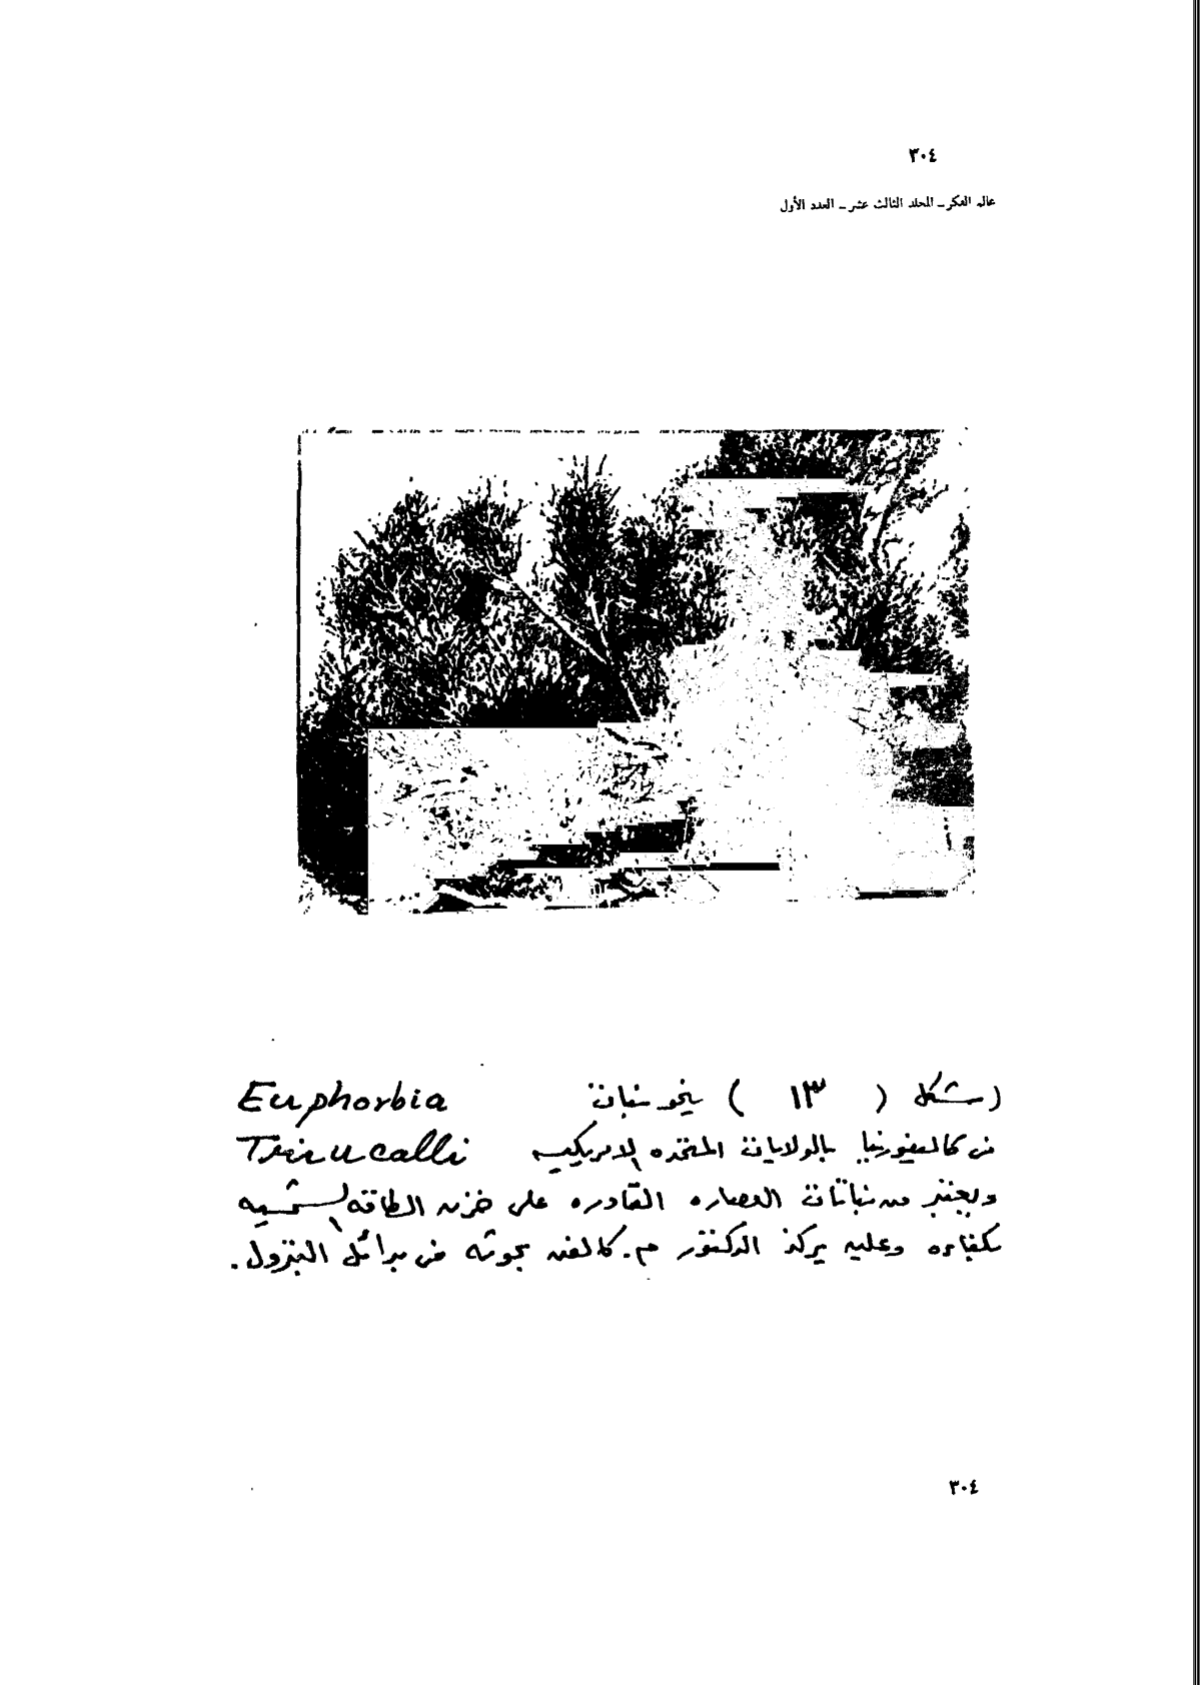 ٣٠٤
عالم الفكر ـ المجلد الثالث عشر ـ العدد الأول
(شكل ( ١٣ ) نمو نبات Euphorbia
Tirucalli في كاليفورنيا بالولايات المتحده الامريكيه
ويعتبر من نباتات العصاره القادره على خزن الطاقه الشمسيه
بكفاءه وعليه يركز الدكتور م. كالفن بحوثه في بدائل البترول.
٣٠٤